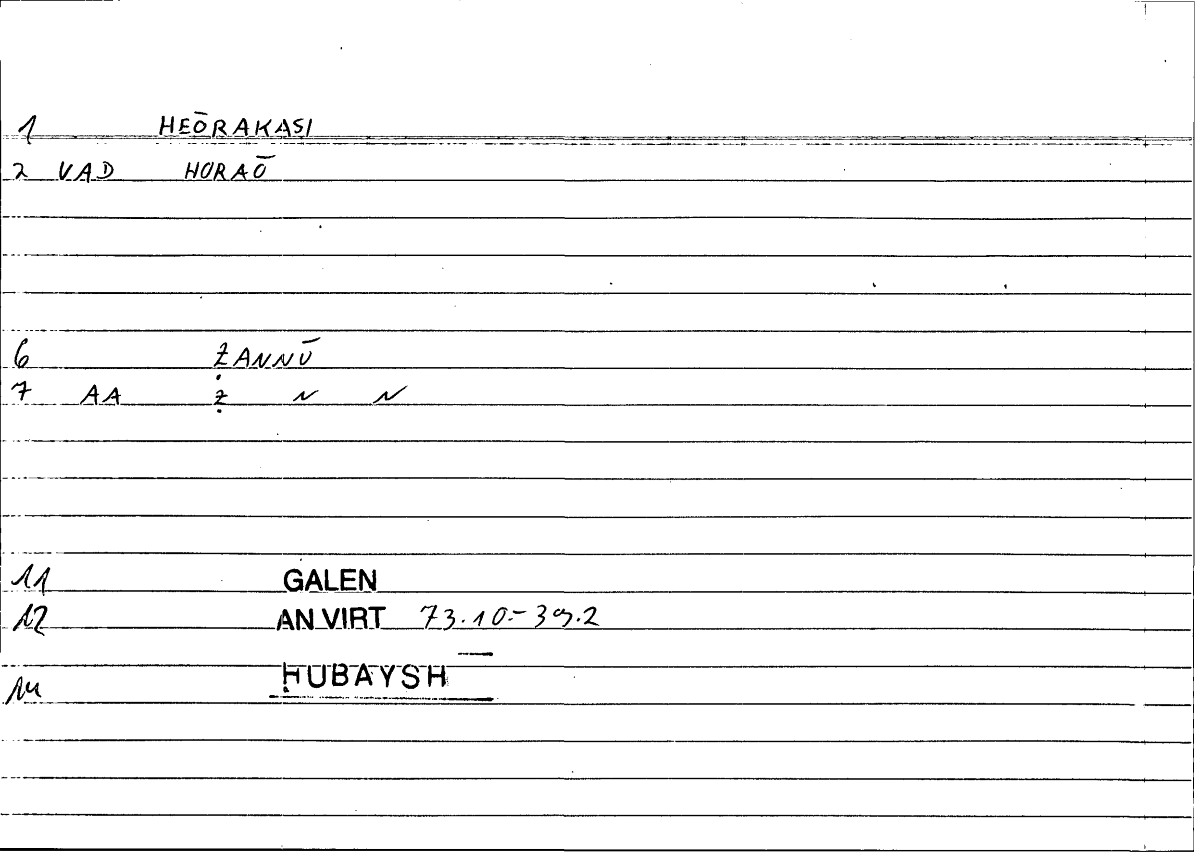 1 HEŌRAKASI
2 VAD HORAŌ
6 ẒANNŪ
7 AA Ẓ N N
11 GALEN
12 AN VIRT 73.10-39.2
14 ḤUBAYSH